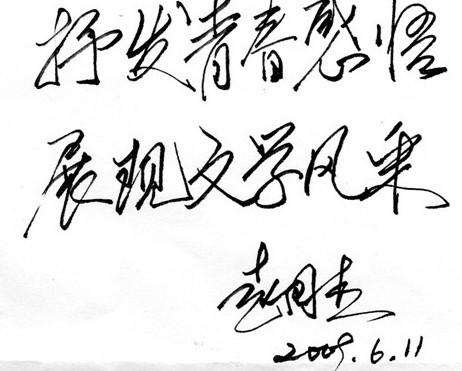 抒发青春感悟
展现文学风采
2009.6.11